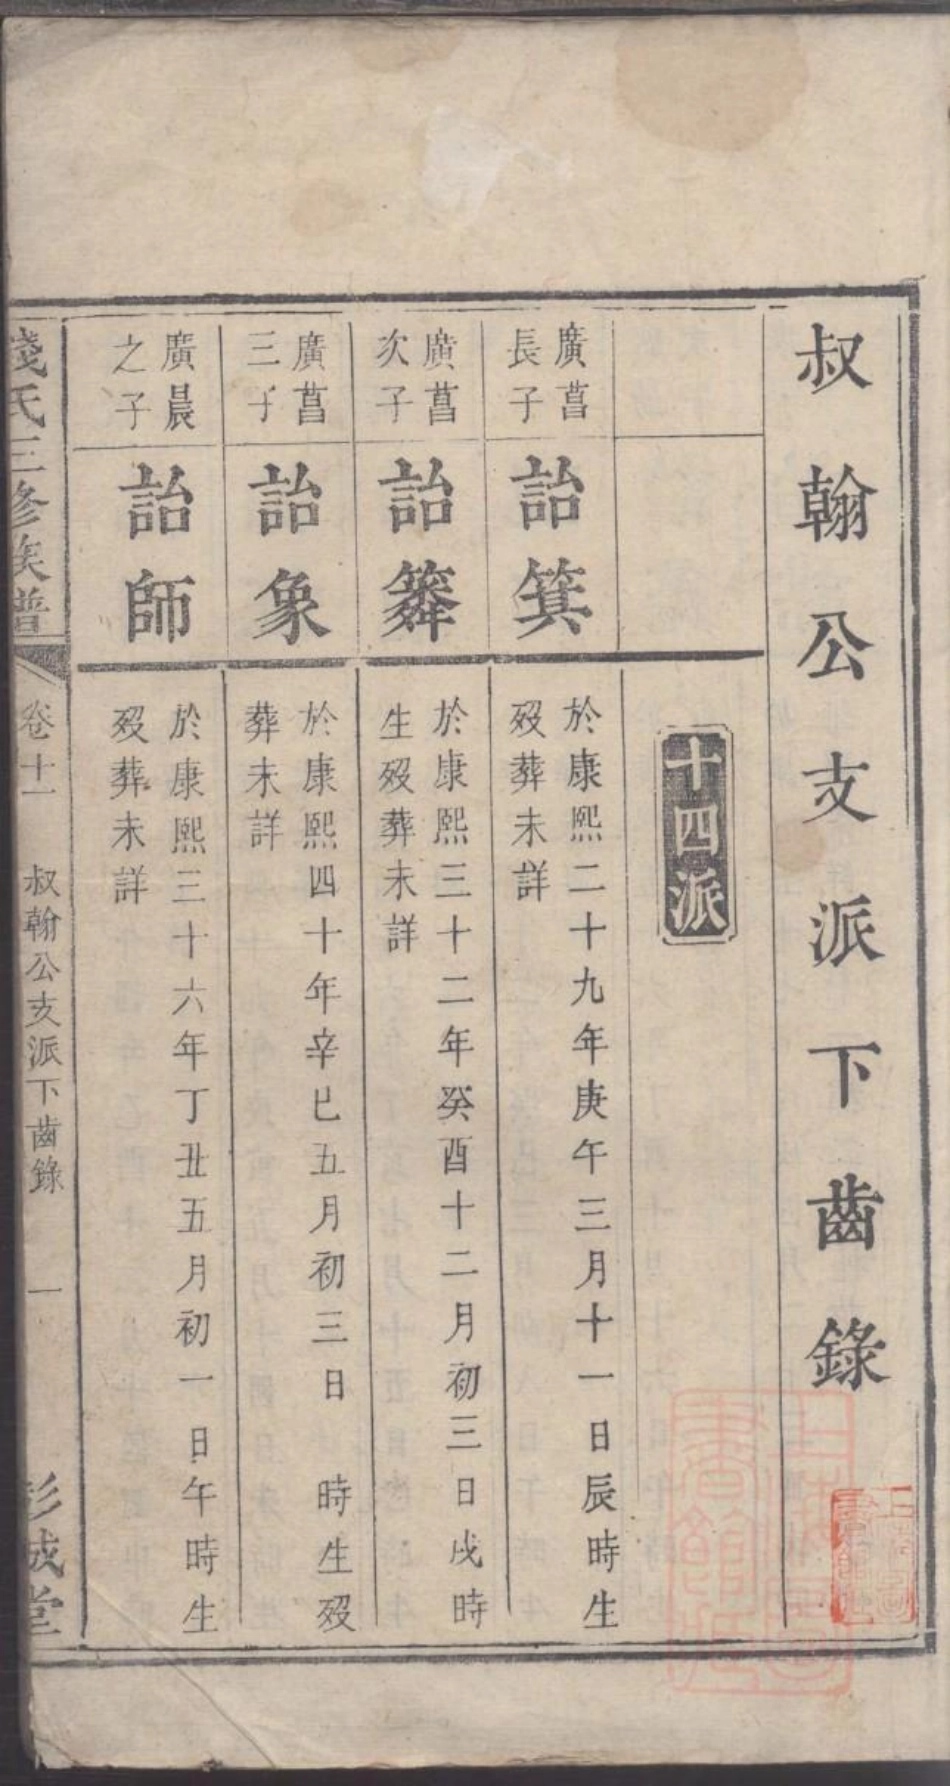 叔翰公支派下齒錄
十四派
廣菖
長子
詒箕
於康熙二十九年庚午三月十一日辰時生
歿葬未詳
廣菖
次子
詒簳
於康熙三十二年癸酉十二月初三日戌時
生歿葬未詳
廣菖
三子
詒象
於康熙四十年辛巳五月初三日　時生歿
葬未詳
廣晨
之子
詒師
於康熙三十六年丁丑五月初一日午時生
歿葬未詳
錢氏三修族譜
卷十一　叔翰公支派下齒錄　一
彭城堂